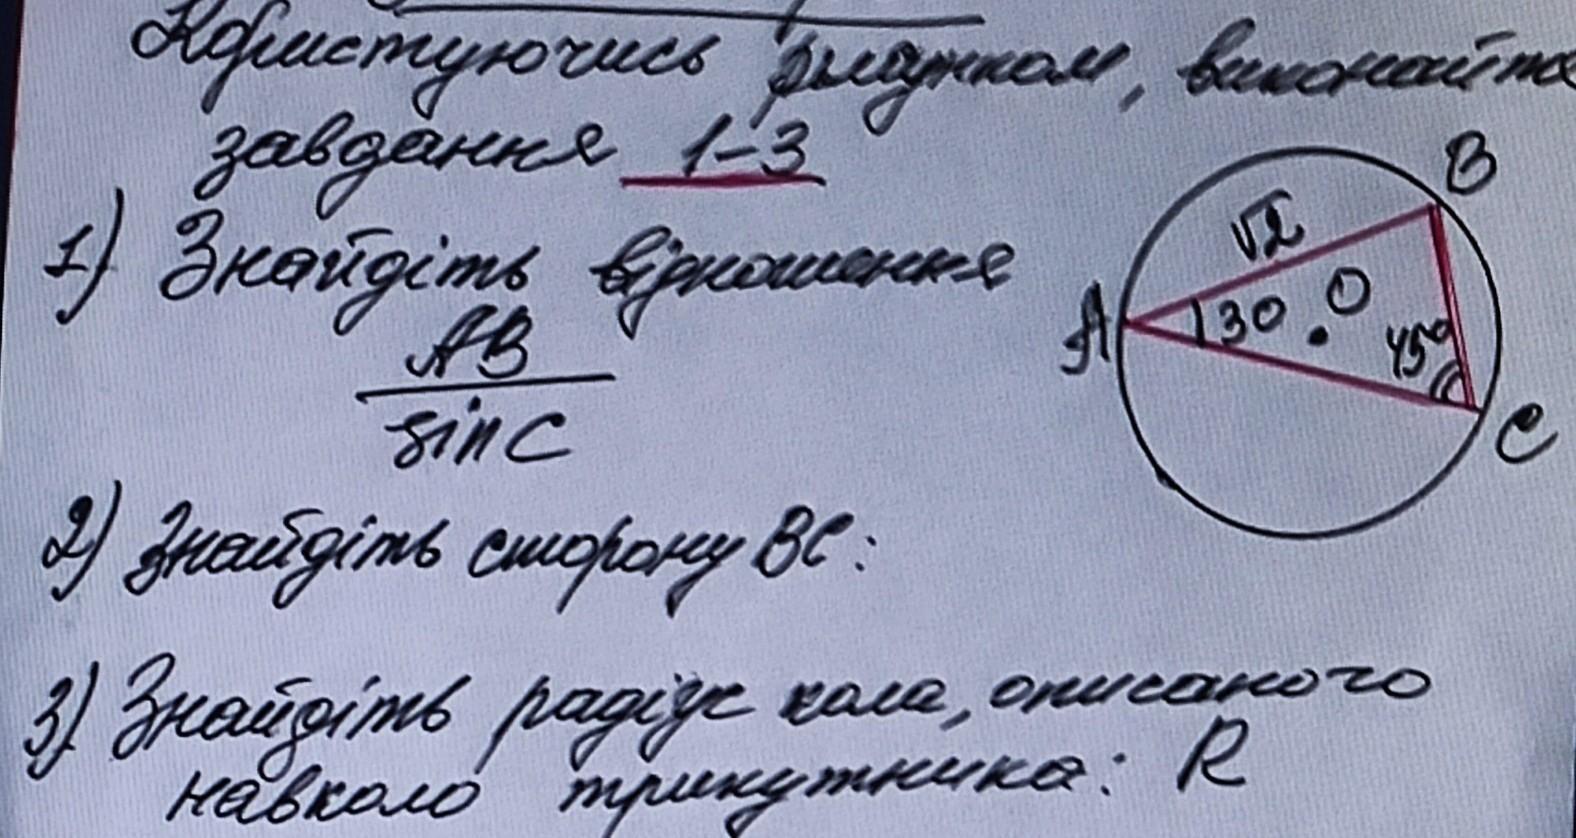 Користуючись рисунком, виконайте
завдання 1-3
1) Знайдіть відношення
AB
sin C
2) Знайдіть сторону BC:
3) Знайдіть радіус кола, описаного
навколо трикутника: R
B
√2
A
30
O
45°
C